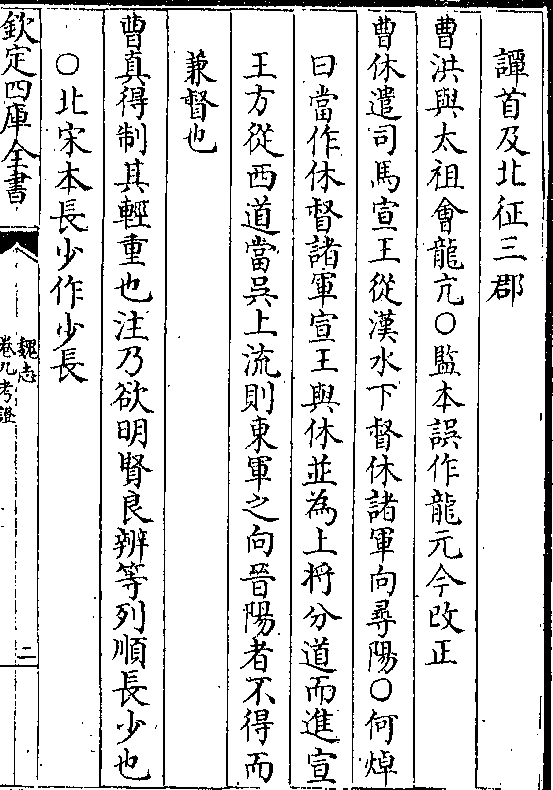 譚首及北征三郡
曹洪與太祖會龍亢○監本誤作龍元今改正
曹休遣司馬宣王從漢水下督休諸軍向尋陽○何焯
曰當作休督諸軍宣王與休並為上將分道而進宣
王方從西道當吳上流則東軍之向晉陽者不得而
兼督也
曹真得制其輕重也注乃欲明賢良辨等列順長少也
○北宋本長少作少長
欽定四庫全書
魏志
卷九考證
二